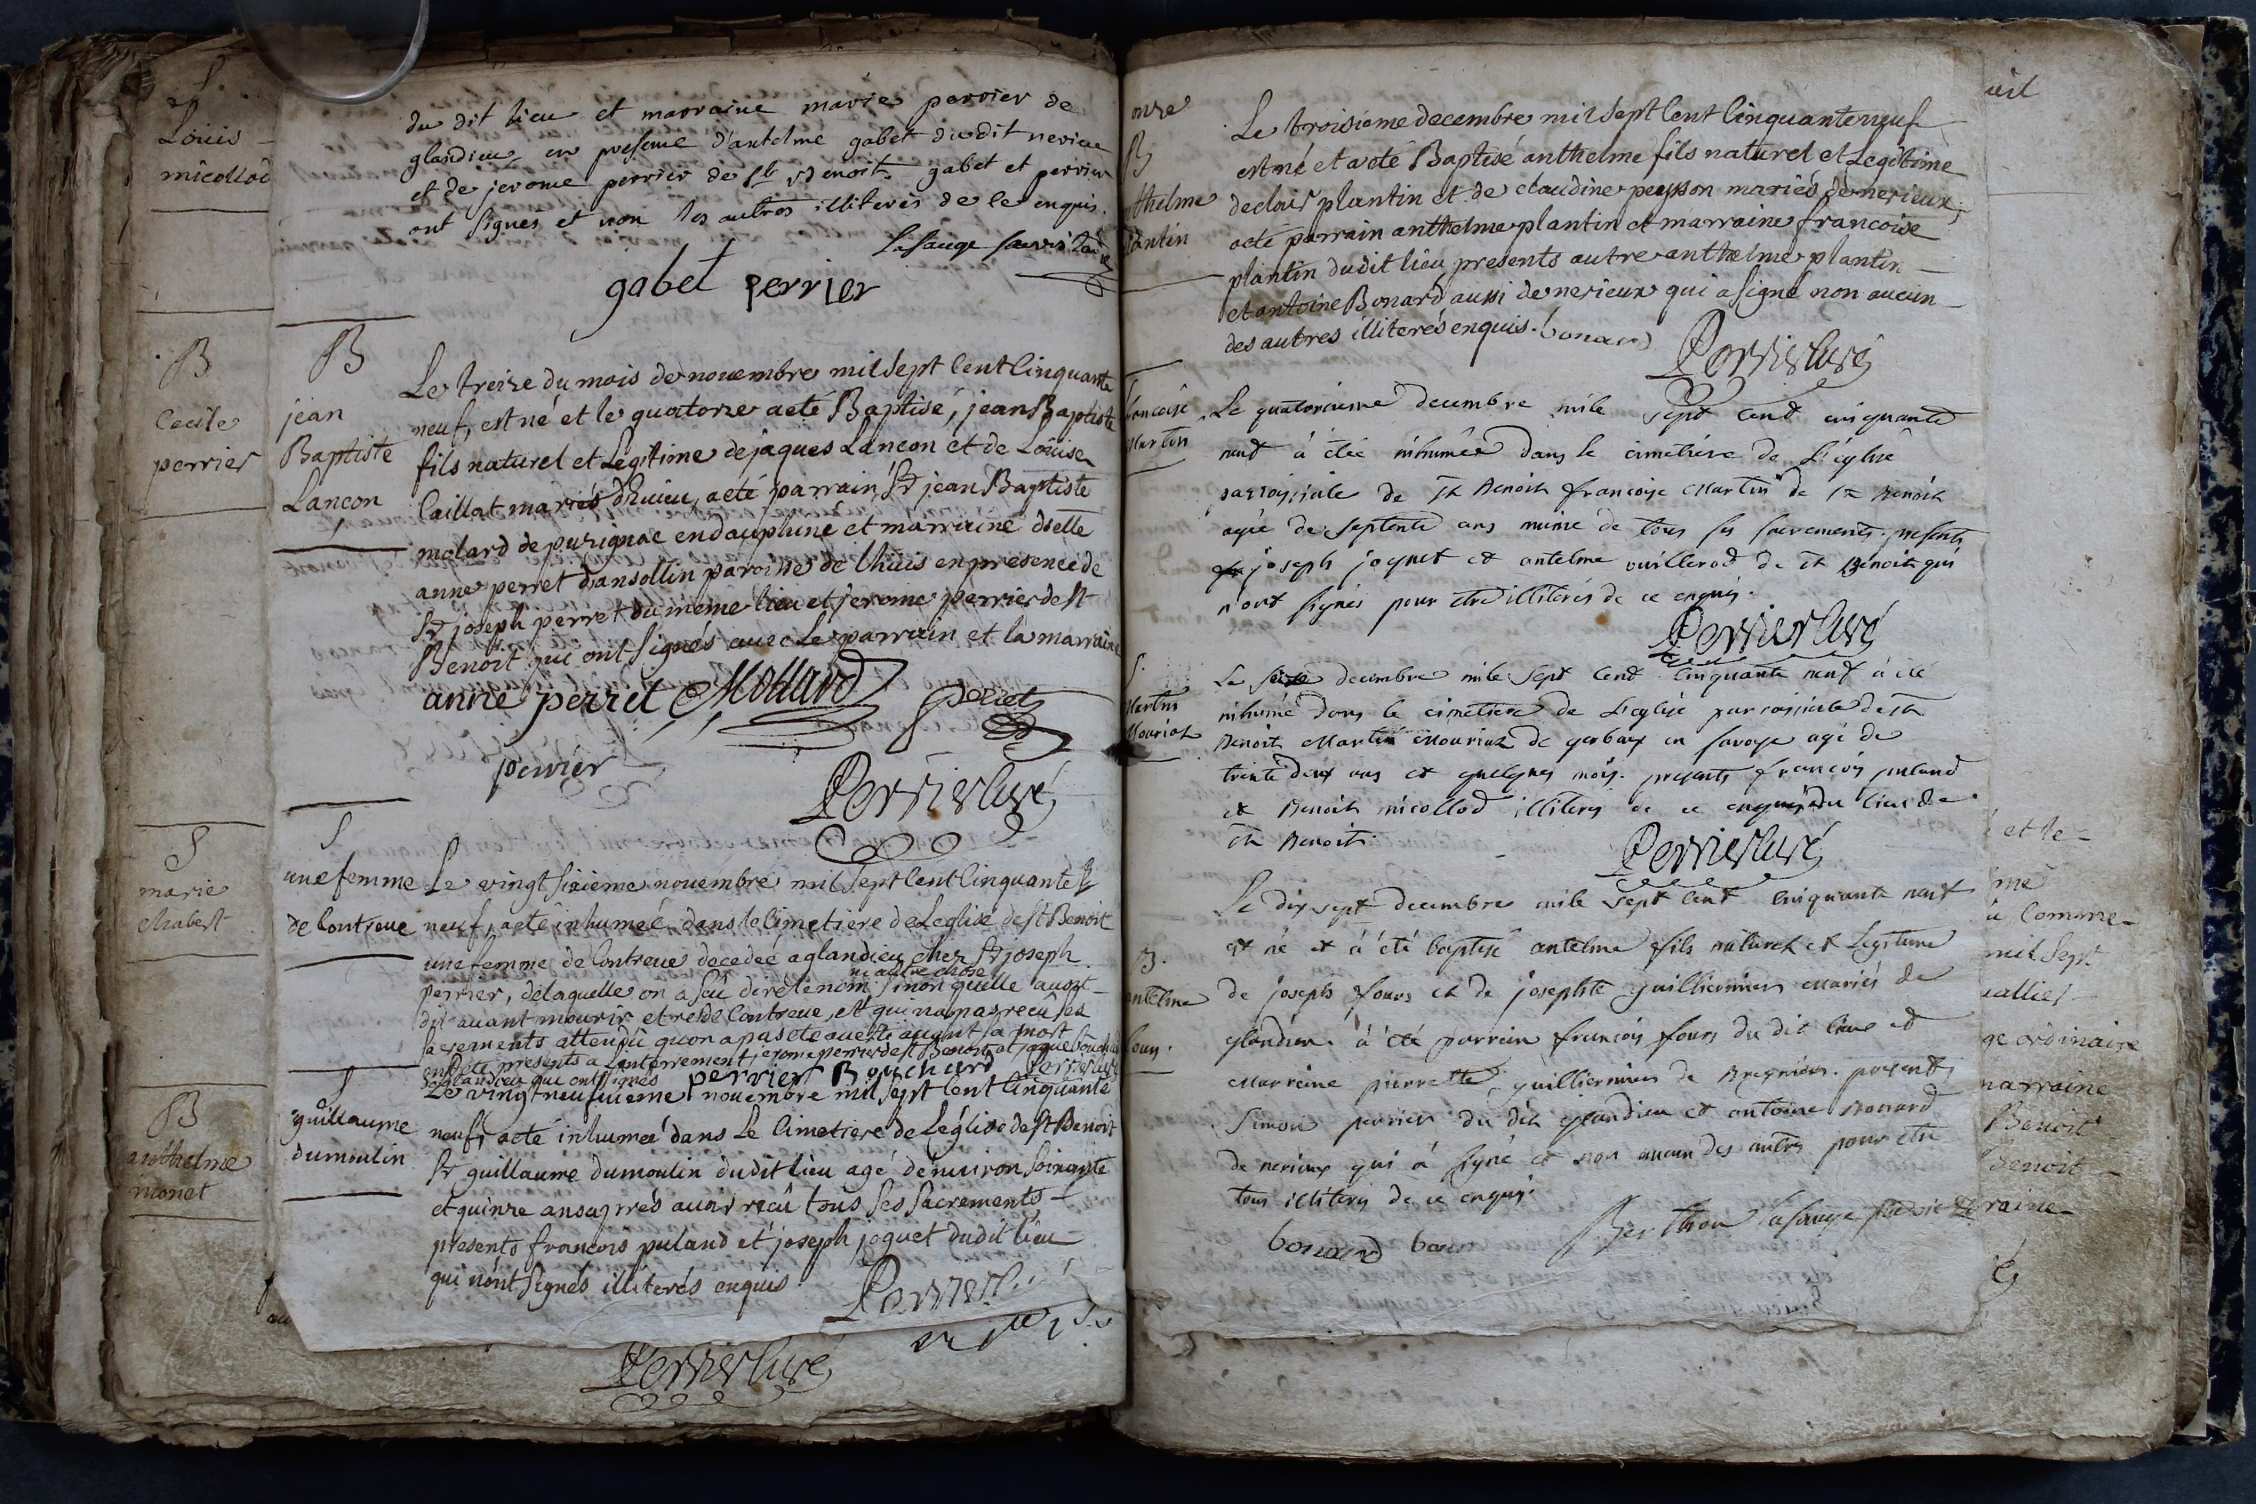 S
Louis
nicollod
B
Cecile
perrier
S
marie
chabert
B
anthelme
monet
du dit lieu et marraine marie perrier de
glandieu en presence d'antelme gabet dudit nerieu
et de jerome perrier de st benoit. gabet et perrier
ont signes et non les autres illiterés de ce enquis.
Lasauge
gabet perrier
B
jean
Baptiste
Lancon
Le treize du mois de novembre mil sept cent cinquante
neuf, est né et le quatorze a eté Baptisé, jean Baptiste
fils naturel et Legitime de jaques Lancon et de Louise
Caillat mariés d'huieu, a eté parrain Sr jean Baptiste
molard de puzignac en dauphine et marraine dlle
anne perret dansollin paroisse de lhuis en presence de
Sr joseph perret du meme lieu et jerome perrier de st
Benoit qui ont signés avec Le parrain et la marraine
anne perret Mollard perret
perrier
Perrier Curé
S
une femme
de Contreve
Le vingt sixieme novembre mil sept cent cinquante
neuf, a eté inhumeé dans le cimetiere de Leglise de st Benoit
une femme de Contreve decedeé a glandieu chez Sr joseph
perrier, de laquelle on a sçû dire le nom ni autre chose sinon quelle avoit
dit avant mourir etre de Contreve, et qui na pas recû ses
sacrements attendû quon a pas eté averti avant sa mort
en ont eté presents a Lenterrement jerome perrier de st Benoit et jaque bouchard
de glandieu qui ont signés perrier Bouchard Perrier Curé
S
guillaume
dumoulin
Le vingt neuvieme novembre mil sept cent cinquante
neuf, a eté inhumeé dans Le Cimetiere de Leglise de st Benoit
Sr guillaume dumoulin dudit lieu agé denviron soixante
et quinze ans apres avoir recû tous ses sacrements
presents francois puland et joseph joguet dudit lieu
qui nont signés illiterés enquis.
Perrier
Perrier Curé
onze
B
anthelme
plantin
Le troisieme decembre mil sept cent cinquante neuf
est né et a eté Baptisé anthelme fils naturel et Legitime
de clair plantin et de claudine peysson mariés de nerieux,
a eté parrain anthelme plantin et marraine francoise
plantin dudit lieu presents autre anthelme plantin
et antoine Bonard aussi de nerieux qui a signé non aucun
des autres illiterés enquis. bonard
Perrier Curé
francoise
Martin
Le quatorzieme decembre mile sept cent cinquante
neuf à étée inhumée dans le cimetiere de L'église
parroissiale de st Benoit francoise Martin de st Benoit
agée de septente ans munie de tous ses sacrements. presents
joseph joguet et antelme vuillerod de st Benoit qui
n'ont signés pour etre illiterés de ce enquis.
Perrier Curé
S.
Martin
Mouriat
Le seize decembre mile sept cent cinquante neuf à été
inhumé dans le cimetiere de L'église parroissiale de st
Benoit Martin Mouriat de gerbaix en savoye agé de
trente deux ans et quelques mois. presents francois puland
et Benoit nicollod illiterés de ce enquis du lieu de
st Benoit
Perrier Curé
B.
antelme
fours.
Le dix sept decembre mile sept cent cinquante neuf
est né et à été baptisé antelme fils naturel et Legitime
de joseph fours et de josephte guillierminer Mariés de
glandieu. à été parrein francois fours du dit lieu et
Marreine pierrette guillierminer de Bregnier. presents
Simon perrier du dit glandieu et antoine Bonard
de nerieux qui à signé et non aucun des autres pour etre
tous illiterés de ce enquis.
bonard
Berthou Lasauge
et le
me
Comme
mil sept
ge ordinaire
marraine
Benoit
Benoit
raine